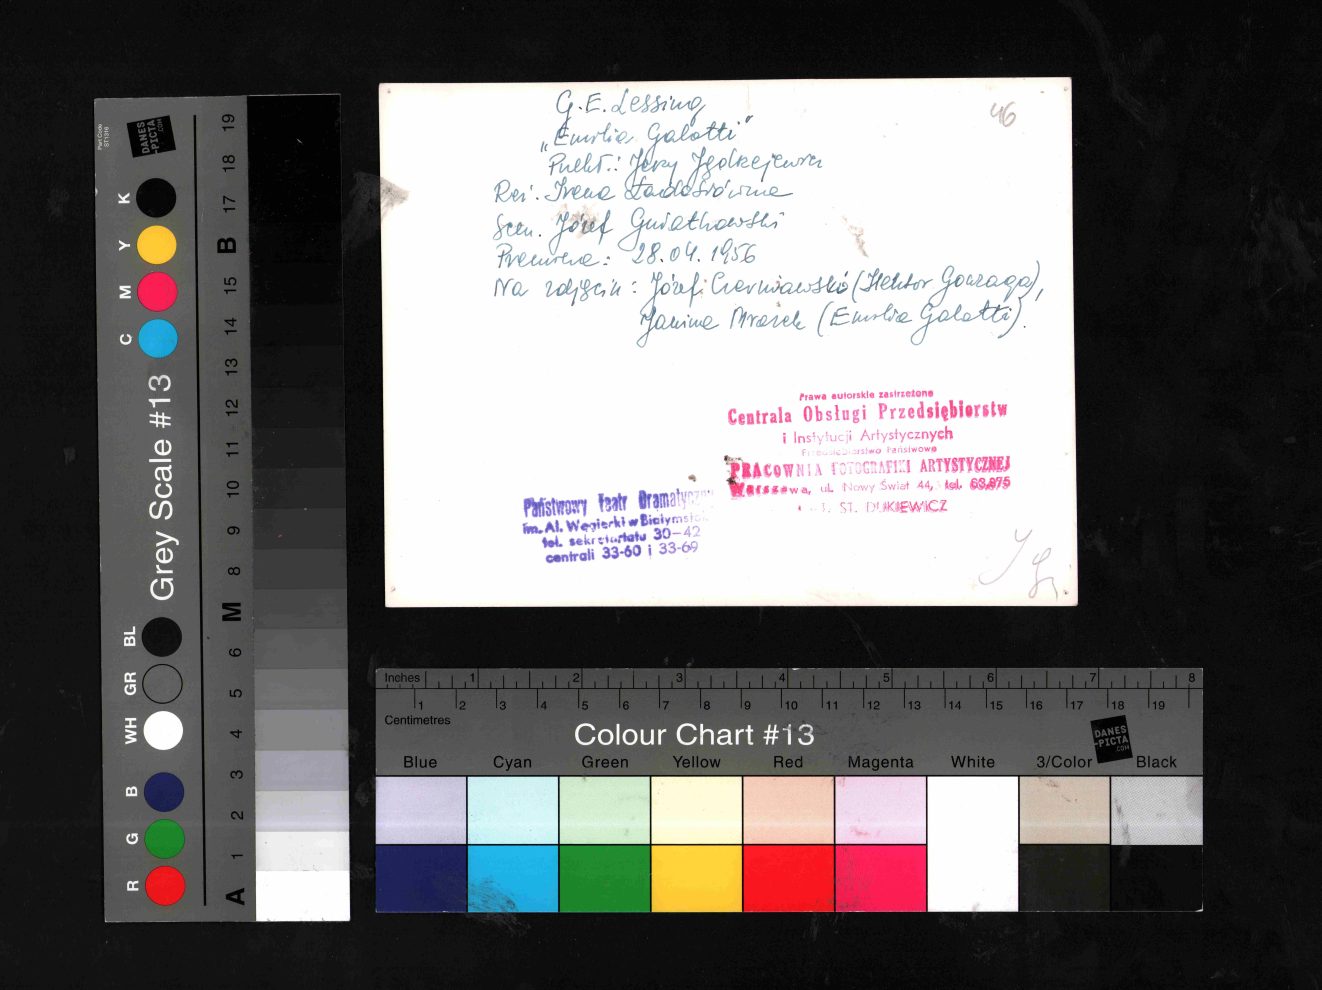 G. E. Lessing
46
„Emilia Galotti"
Przekł.: Jerzy Jędrzejewicz
Reż. Irena Ładosiówna
Scen. Józef Gwiatkowski
Premiera: 28.04.1956
Na zdjęciu: Józef Czerniawski (Hektor Gonzaga),
Janina Mrazek (Emilia Galotti).
Prawa autorskie zastrzeżone
Centrala Obsługi Przedsiębiorstw
i Instytucji Artystycznych
Przedsiębiorstwo Państwowe
PRACOWNIA FOTOGRAFIKI ARTYSTYCZNEJ
Warszawa, ul. Nowy Świat 44, tel. 63,875
ST. DUKIEWICZ
Państwowy Teatr Dramatyczny
im. Al. Węgierki w Białymsto
tel. sekretariatu 30-42
centrali 33-60 i 33-69
Part Code
ST1316
DANES
-PICTA
.COM
K
Y
M
C
Grey Scale #13
BL
GR
WH
B
G
R
19
18
17
B
15
14
13
12
11
10
9
8
M
6
5
4
3
2
1
A
Inches 1 2 3 4 5 6 7 8
1 2 3 4 5 6 7 8 9 10 11 12 13 14 15 16 17 18 19
Centimetres
Colour Chart #13
DANES
-PICTA
.COM
Blue Cyan Green Yellow Red Magenta White 3/Color Black